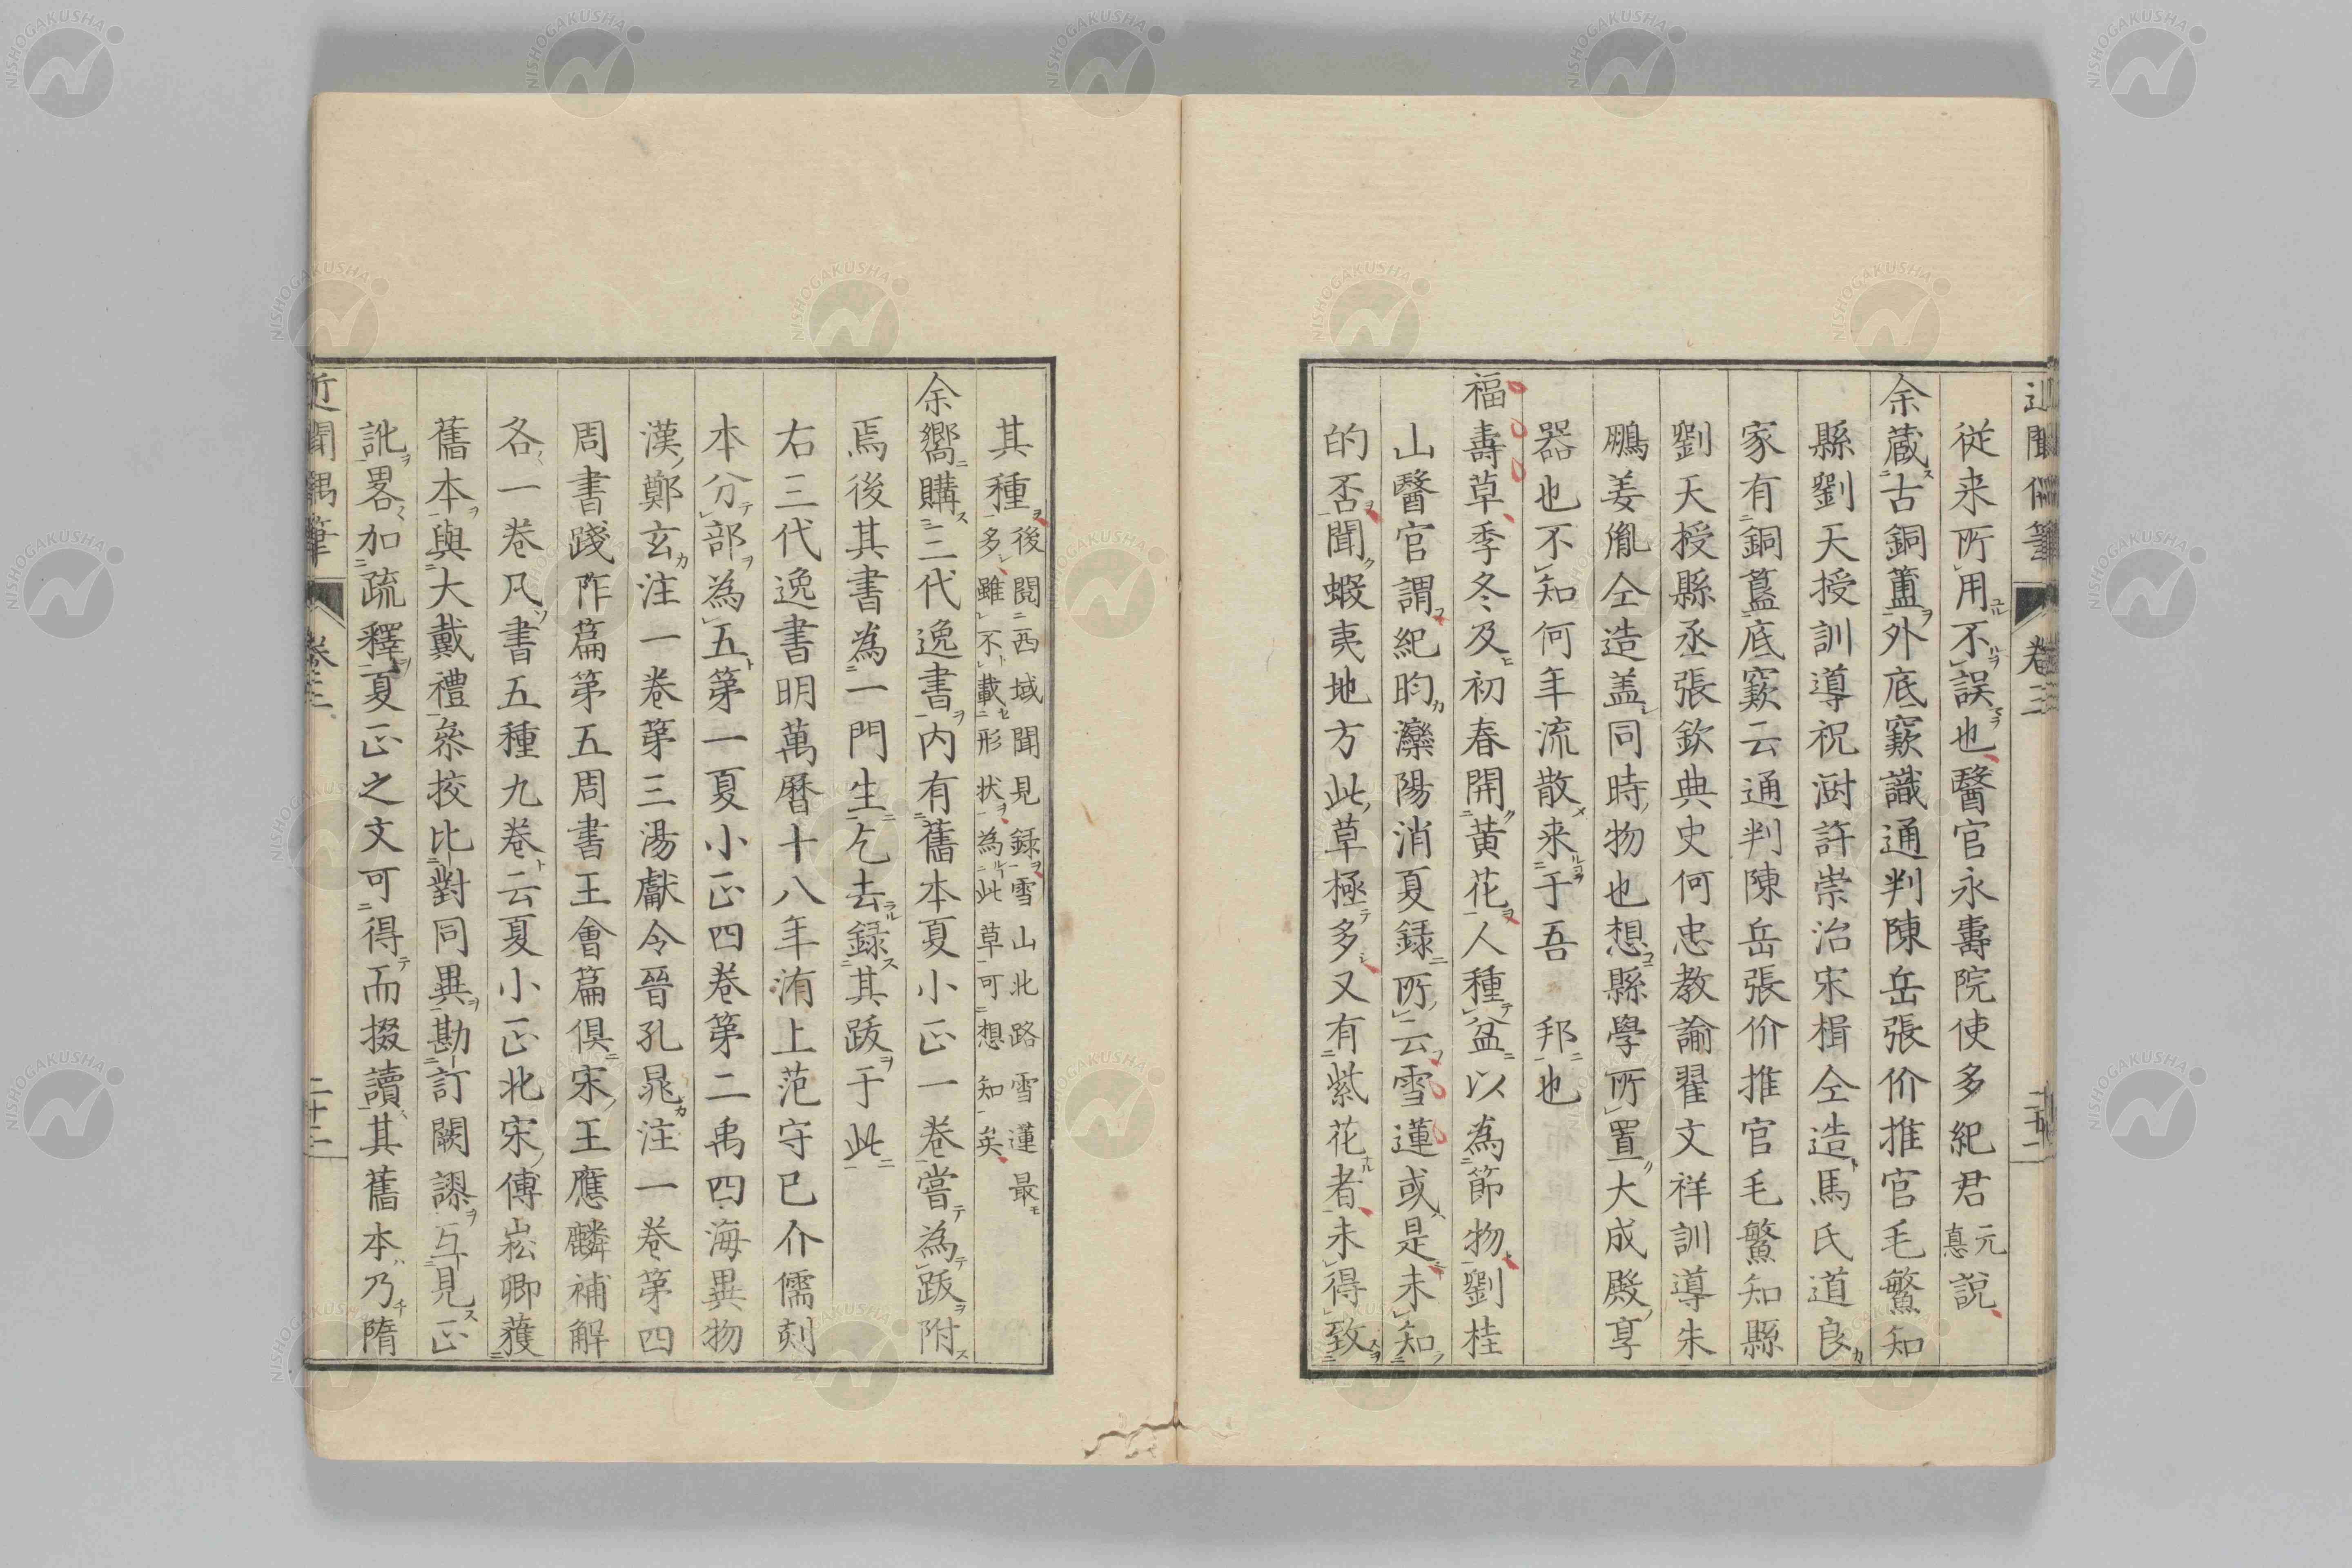 従来所用不誤也醫官永壽院使多紀君元悳説
余蔵古銅簠外底窾識通判陳岳張价推官毛鷩知
縣劉天授訓導祝澍許崇治宋楫仝造馬氏道良
家有銅簋底窾云通判陳岳張价推官毛鷩知縣
劉天授縣丞張欽典史何忠教諭翟文祥訓導朱
鵰姜胤仝造盖同時物也想縣學所置大成殿享
器也不知何年流散来于吾 邦也
福壽草季冬及初春開黄花人種盆以為節物劉桂
山醫官謂紀昀灤陽消夏録所云雪蓮或是未知
的否聞蝦夷地方此草極多又有紫花者未得致
其種後閲西域聞見録雪山北路雪蓮最
多雖不載形状為此草可想知矣
余嚮購三代逸書内有舊本夏小正一巻嘗為跋附
焉後其書為一門生乞去録其跋于此
右三代逸書明萬暦十八年洧上范守巳介儒刻
本分部為五第一夏小正四巻第二禹四海異物
漢鄭玄注一巻第三湯獻令晉孔晁注一巻第四
周書踐阼篇第五周書王會篇倶宋王應麟補解
各一巻凡書五種九巻云夏小正北宋傅崧卿蒦
舊本與大戴禮叅挍比對同異勘訂闕謬互見正
訛畧加疏釋夏正之文可得而掇讀其舊本乃隋
近聞偶筆 巻三